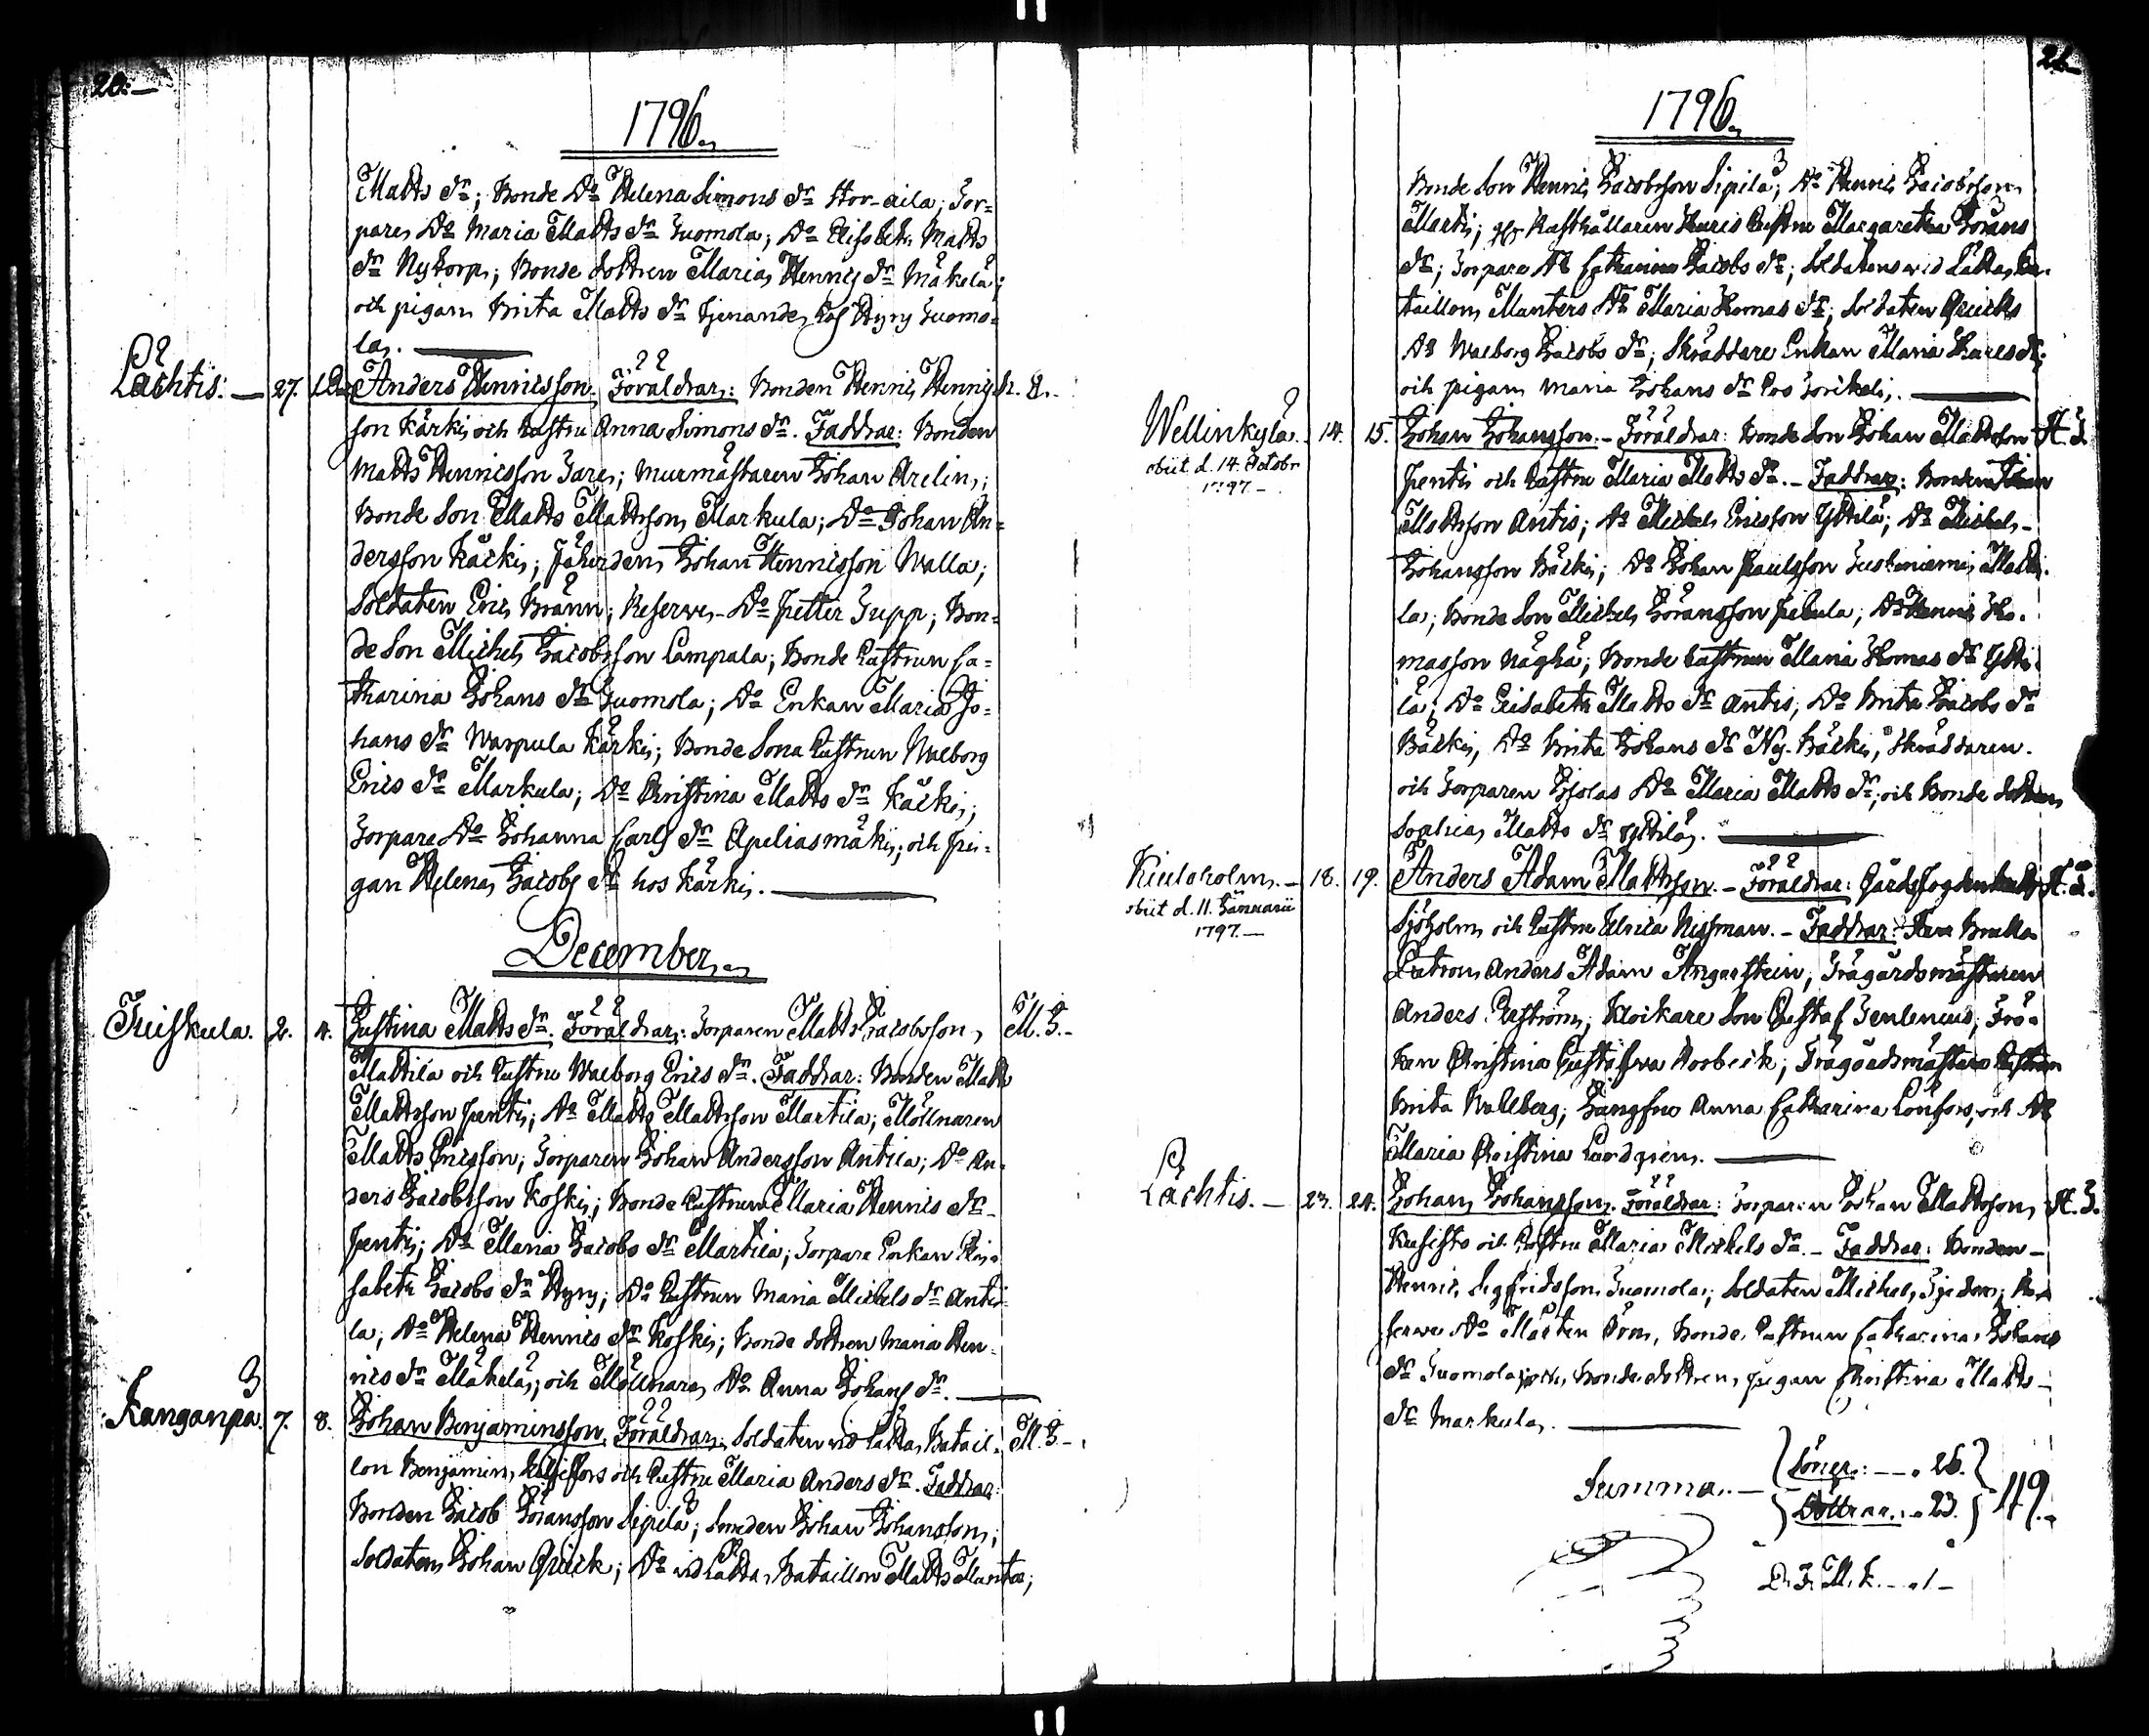 20.
1796.
Matts dr; Bonde Do Helena Simons dr Stor-aila; Tor-
pare Do Maria Matts dr Tuomola; Do Elisabeth Matts
dr Nytorp; Bonde dottren Maria Henrics dr Mäkelä;
och pigan Brita Matts dr tjenande hos Hyry Tuomo-
la.
Lächtis. 27. Anders Henricsson. Föräldrar: Bonden Henric Henrics-
son Kärki och hustru Anna Simons dr. Faddrar: Bonden
Matts Henricsson; murmästaren Johan Arelin;
Bonde Son Matts Mattsson Markula; Do Johan An-
dersson Kärki; Johan Henricsson Walla;
Soldaten Eric Bränn; Reserve Do Petter Tupp; Bon-
de Son Michel Jacobsson Lampala; Bonde hustrun Ca-
tharina Johans dr Tuomola; Do Enkan Maria Jo-
hans dr Warpula Kärki; Bonde Sona hustrun Walborg
Erics dr Markula; Do Christina Matts dr Kärki;
Torpare Do Johanna Carls dr Apeliasmäki; och pi-
gan Helena Jacobs dr hos Kärki.
December.
Tuiskula. 2. 4. Justina Matts dr. Föräldrar: Torparen Matts Jacobsson M. F.
Mattila och hustru Walborg Erics dr. Faddrar: Bonden Matts
Mattsson Pentti; Do Matts Mattsson Martila; Möllnaren
Matts Ericsson; Torparen Johan Andersson Antila; Do An-
ders Jacobsson Koski; Bonde hustrun Maria Henrics dr
Pentti; Do Maria Jacobs dr Martila; Torpare Enkan Eli-
sabeth Jacobs dr Hyry; Do hustrun Maria Michels dr Anti-
la; Do Helena Henrics dr Koski; Bonde dottren Maria Hen-
rics dr Mäkelä; och Möllnare Do Anna Johans dr.
Kanganpä. 7. 8. Johan Benjaminsson. Föräldrar: Soldaten vid Lätta Batail- M. F.
lon Benjamin och hustru Maria Anders dr. Faddrar:
Bonden Jacob Göransson Sipilä; Smeden Johan Johansson;
Soldaten Johan Quick; Do vid Lätta Bataillon Matts Munter;
21.
1796.
Bonde Son Henric Jacobsson Sipilä; Do Henric Jacobsson
Martti; Rusthållaren hustru Margaretha Görans
dr; Torpare Do Catharina Jacobs dr; Soldatens vid Lätta Ba-
taillon Munters Do Maria Thomas dr; Soldaten Quicks
Do Walborg Jacobs dr; Skräddare Enkan Maria dr;
och pigan Maria Johans dr hos
Wellinkylä. 14. 15. Johan Johansson. Föräldrar: Bonde Son Johan Mattsson
obiit d. 14. Octobr
1797.
Pentti och hustru Maria Matts dr. Faddrar: Bonden Johan
Mattsson Antti; Do Michel Ericsson Yttilä; Do Michel
Johansson Bäcki; Do Johan Paulsson Matti-
la; Bonde Son Michel Göransson; Do Henric Tho-
masson Näghä; Bonde hustrun Maria Thomas dr Ytti-
lä; Do Elisabeth Matts dr Antti; Do Brita Jacobs dr
Bäcki, Do Brita Johans dr Ny-Bäcki; Skräddaren
och Torparen Do Maria Matts dr; och Bonde dottren
Sophia Matts dr Yttilä.
Kiuloholm. 18. 19. Anders Adam Mattsson. Föräldrar: Gårdsfogden
obiit d. 11. Januarii
1797.
Sjöholm och hustru Ulrica Nissman. Faddrar: Herr Bruks
Patron Anders Adam Angerstein; Trägårdsmästaren
Anders; Klockare Son Gustaf Tenlenius; Frö-
ken Christina Gustafva Roobeck; Trägårdsmästare hustrun
Brita Wallberg; Jungfru Anna Catharina Lönfors; och Do
Maria Christina Landgren.
Lächtis. 23. 24. Johan Johansson. Föräldrar: Torparen Johan Mattsson
och hustru Maria Michels dr. Faddrar: Bonden
Henric Sigfridsson Tuomola; Soldaten Michel; Re-
serve Do Mårten Örn, Bonde hustrun Catharina Johans
dr Tuomola; och Bonde dottren pigan Christina Matts
dr Markula.
Summa. Söner: 26.
Döttrar: 23. 49.
D. F. M. K. 1